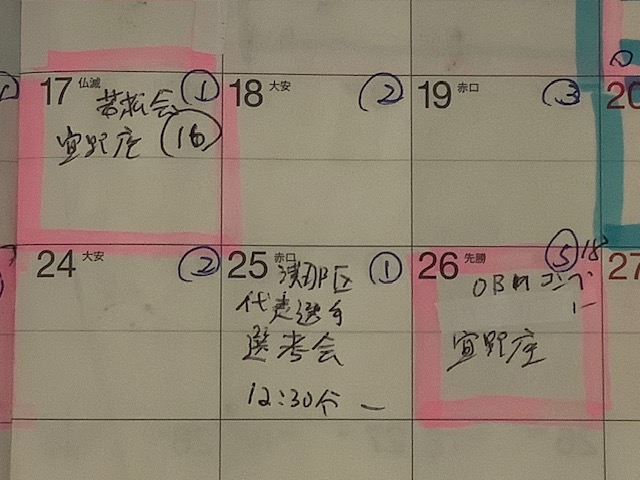 17 仏滅 ①
若松会
宜野座 (16)
18 大安 ②
19 赤口 ③
20
24 大安 ②
25 赤口 ①
代表選手
選考会
12:30分 ー
26 先勝 ⑤ 18
宜野座
27